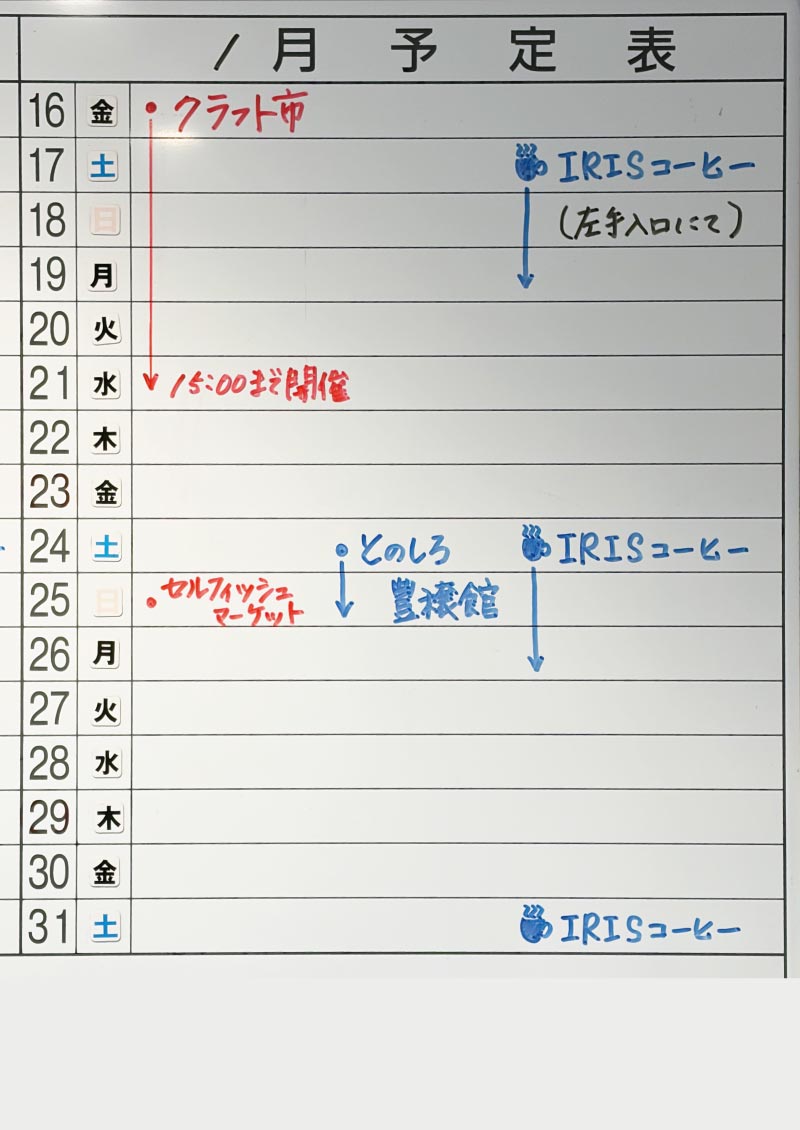 1月予定表
16 金 クラフト市
17 土 IRISコーヒー
18 日 (左手入口にて)
19 月
20 火
21 水 15:00まで開催
22 木
23 金
24 土 とのしろ IRISコーヒー
25 日 セルフィッシュ
マーケット 豊穣館
26 月
27 火
28 水
29 木
30 金
31 土 IRISコーヒー